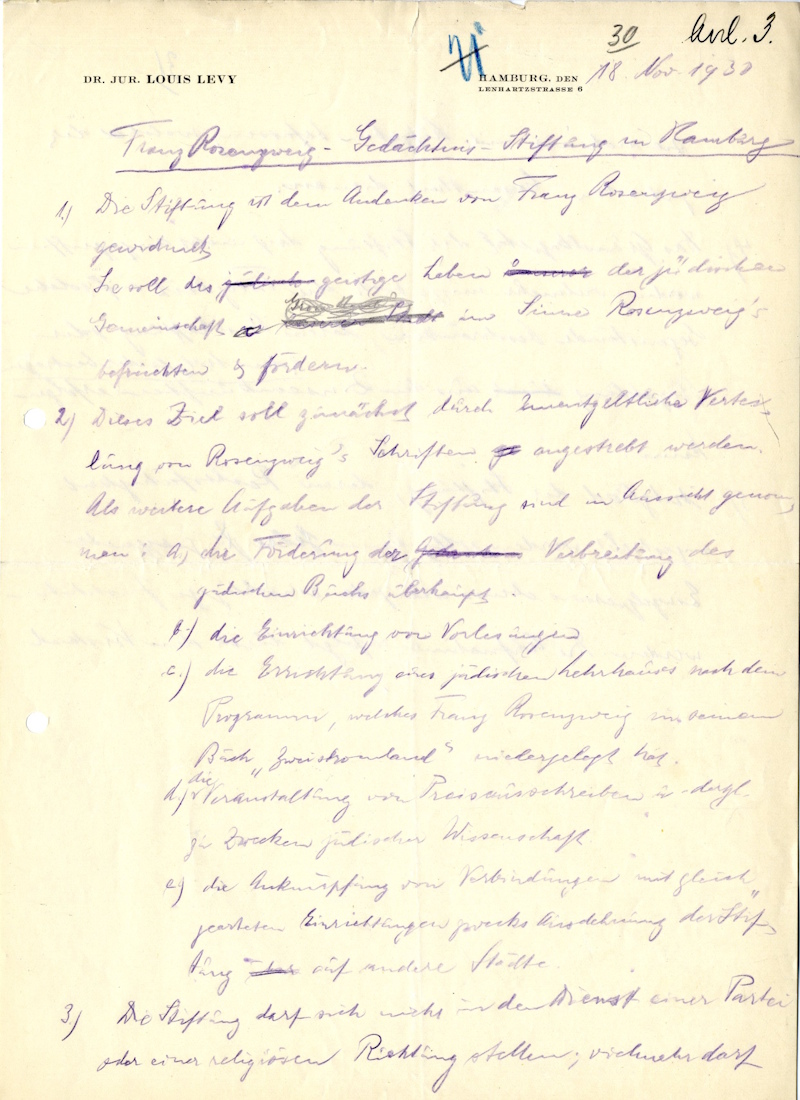 30 Anl. 3.
DR. JUR. LOUIS LEVY
HAMBURG, DEN 18. Nov. 1930
LENHARTZSTRASSE 6
Franz Rosenzweig - Gedächtnis - Stiftung in Hamburg
1.) Die Stiftung ist dem Andenken von Franz Rosenzweig
gewidmet
Sie soll das geistige Leben der jüdischen
Gemeinschaft im Sinne Rosenzweig's
befruchten & fördern.
2) Dieses Ziel soll zunächst durch unentgeltliche Vertei-
lung von Rosenzweig's Schriften angestrebt werden.
Als weitere Aufgaben der Stiftung sind in Aussicht genom-
men: a.) die Förderung der Verbreitung des
jüdischen Buchs überhaupt.
b.) die Einrichtung von Vorlesungen
c.) die Errichtung eines jüdischen Lehrhauses nach dem
Programm, welches Franz Rosenzweig in seinem
Buch „Zweistromland" niedergelegt hat.
d.) die Veranstaltung von Preisausschreiben u. dergl.
zu Zwecken jüdischer Wissenschaft
e) die Anknüpfung von Verbindungen mit gleich
gearteten Einrichtungen zwecks Ausdehnung der Stif-
tung auf andere Städte.
3) Die Stiftung darf sich nicht in den Dienst einer Partei
oder einer religiösen Richtung stellen; vielmehr darf